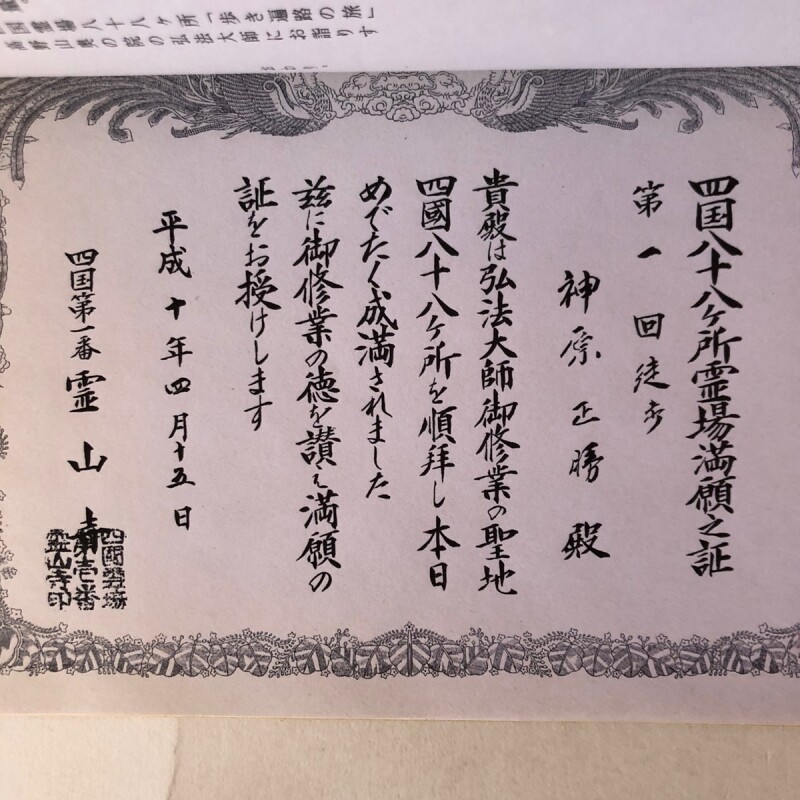 四国霊場八十八ヶ所「歩き遍路の旅」
高野山奥の院の弘法大師にお詣りす
おわり。
四国八十八ヶ所霊場満願之証
第一回徒歩
神原正勝殿
貴殿は弘法大師御修業の聖地
四國八十八ヶ所を順拜し本日
めでたく成満されました
茲に御修業の徳を讃え満願の
証をお授けします
平成十年四月十五日
四国第一番霊山寺
四國霊場
第壱番
霊山寺印